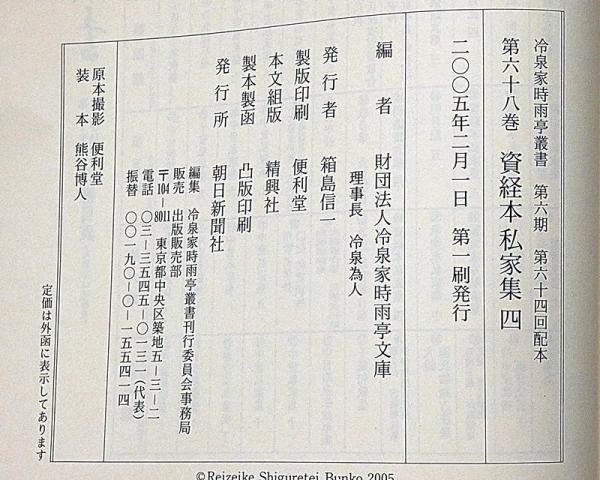 冷泉家時雨亭叢書　第六期　第六十四回配本
第六十八巻　資経本私家集 四
二〇〇五年二月一日　第一刷発行
編者　財団法人冷泉家時雨亭文庫
理事長　冷泉為人
発行者　箱島信一
製版印刷　便利堂
本文組版　精興社
製本製函　凸版印刷
発行所　朝日新聞社
編集　冷泉家時雨亭叢書刊行委員会事務局
販売　出版販売部
〒104-8011　東京都中央区築地五-三-二
電話　〇三-三五四五-〇一三一(代表)
振替　〇〇一九〇-〇-一五五四一四
原本撮影　便利堂
装本　熊谷博人
定価は外函に表示してあります
©Reizeike Shiguretei Bunko 2005